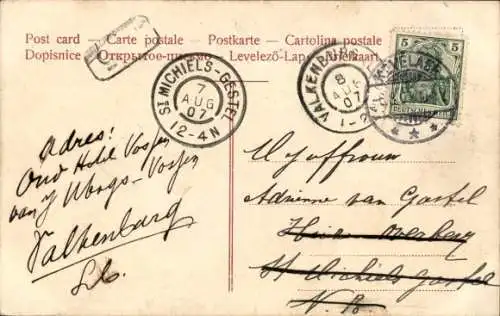 Post card — Carte postale — Postkarte — Cartolina postale
Dopisnice — Открытое письмо — Levelező-Lap
ST MICHIELS-GESTEL
7
AUG
07
12-4N
VALKENBURG
8
AUG
07
5 5
DEUTSCHES REICH
Adres:
Oud Hotel Vossen
van
Valkenburg
Lb.
Mejuffrouw
Adrienne van Gastel
Huize
St Michiels Gestel
N. B.